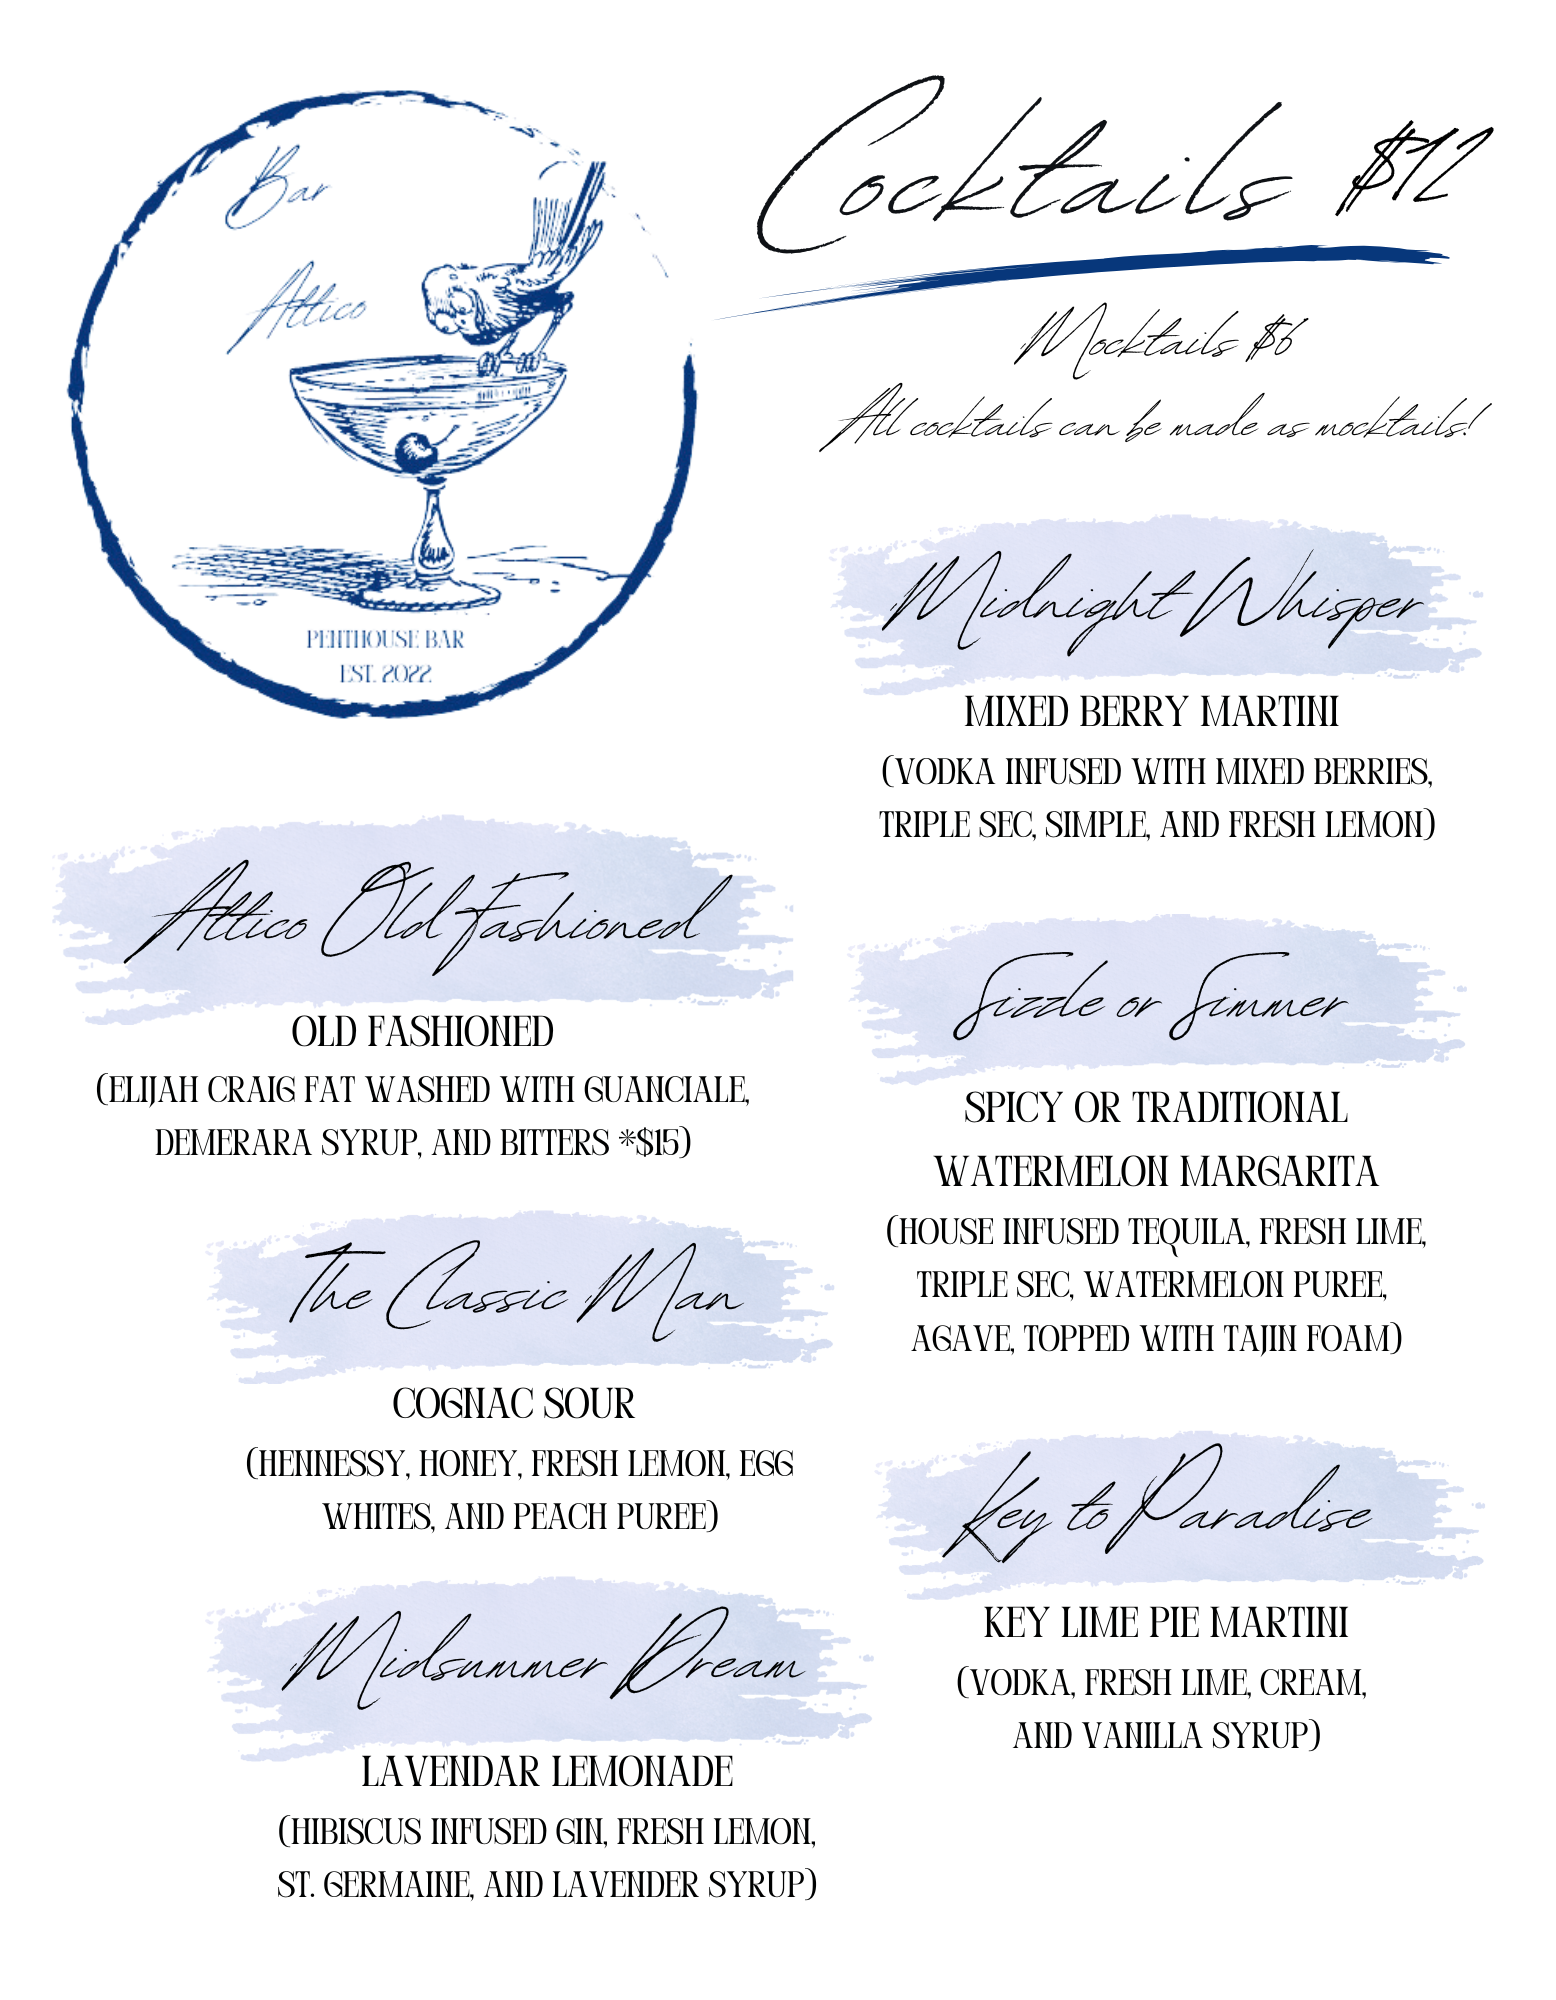 Bar
Attico
PENTHOUSE BAR
EST. 2022
Cocktails $12
Mocktails $6
All cocktails can be made as mocktails!
Midnight Whisper
MIXED BERRY MARTINI
(VODKA INFUSED WITH MIXED BERRIES,
TRIPLE SEC, SIMPLE, AND FRESH LEMON)
Attico Old Fashioned
OLD FASHIONED
(ELIJAH CRAIG FAT WASHED WITH GUANCIALE,
DEMERARA SYRUP, AND BITTERS *$15)
The Classic Man
COGNAC SOUR
(HENNESSY, HONEY, FRESH LEMON, EGG
WHITES, AND PEACH PUREE)
Midsummer Dream
LAVENDAR LEMONADE
(HIBISCUS INFUSED GIN, FRESH LEMON,
ST. GERMAINE, AND LAVENDER SYRUP)
Sizzle or Simmer
SPICY OR TRADITIONAL
WATERMELON MARGARITA
(HOUSE INFUSED TEQUILA, FRESH LIME,
TRIPLE SEC, WATERMELON PUREE,
AGAVE, TOPPED WITH TAJIN FOAM)
Key to Paradise
KEY LIME PIE MARTINI
(VODKA, FRESH LIME, CREAM,
AND VANILLA SYRUP)